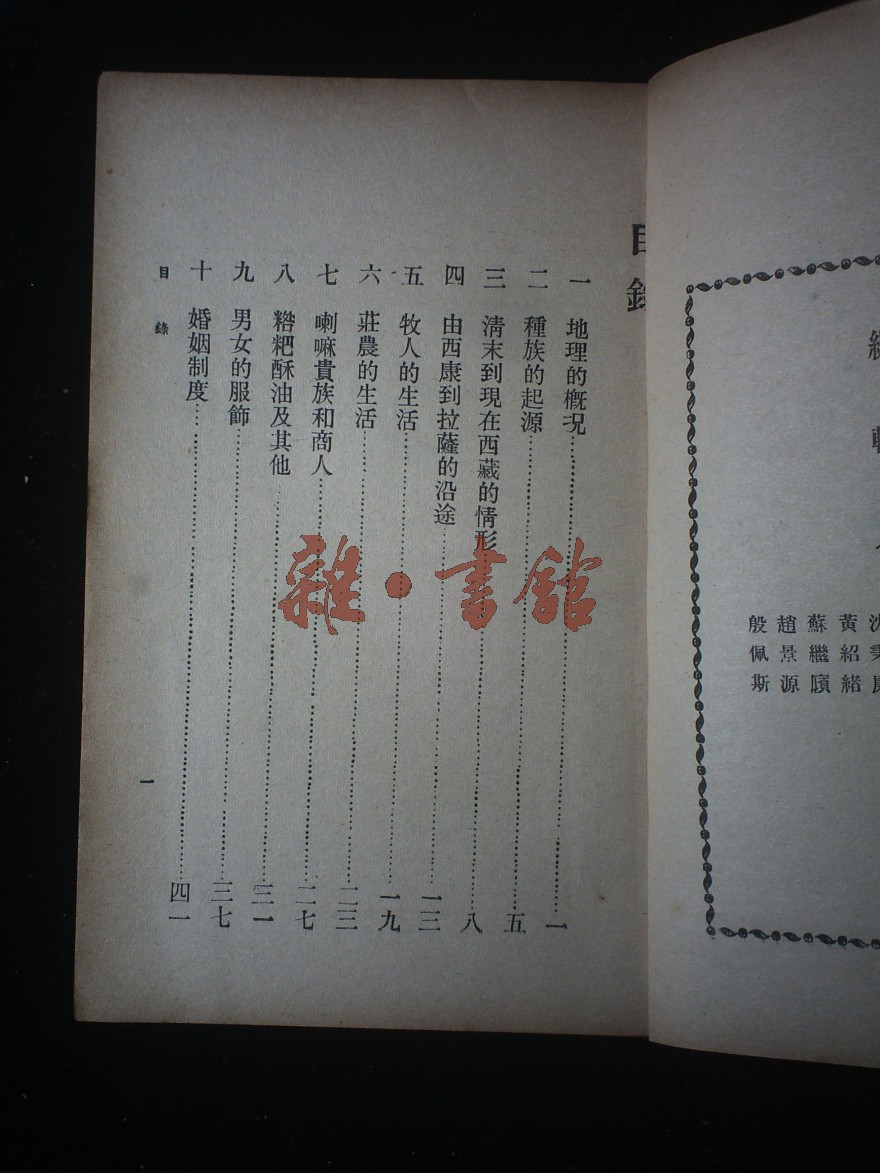 目錄
一 地理的概況 一
二 種族的起源 五
三 清末到現在西藏的情形 八
四 由西康到拉薩的沿途 一三
五 牧人的生活 一九
六 莊農的生活 二三
七 喇嘛貴族和商人 二七
八 糌粑酥油及其他 三一
九 男女的服飾 三七
十 婚姻制度 四一
目錄
一
雜·書館
黃紹緒
蘇繼廎
趙景源
殷佩斯